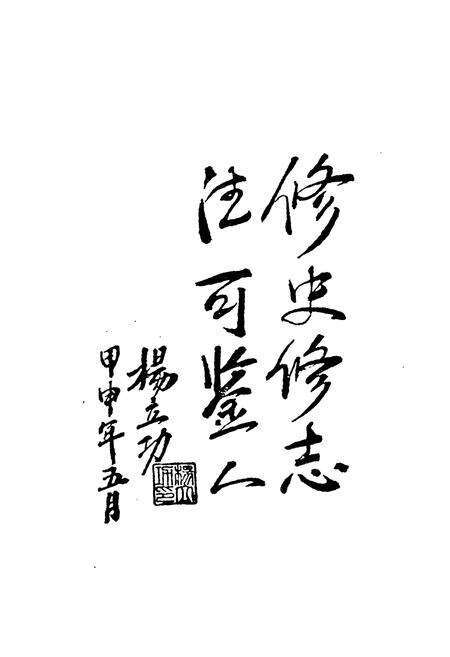 修史修志
往可鉴人
楊立功
甲申年五月